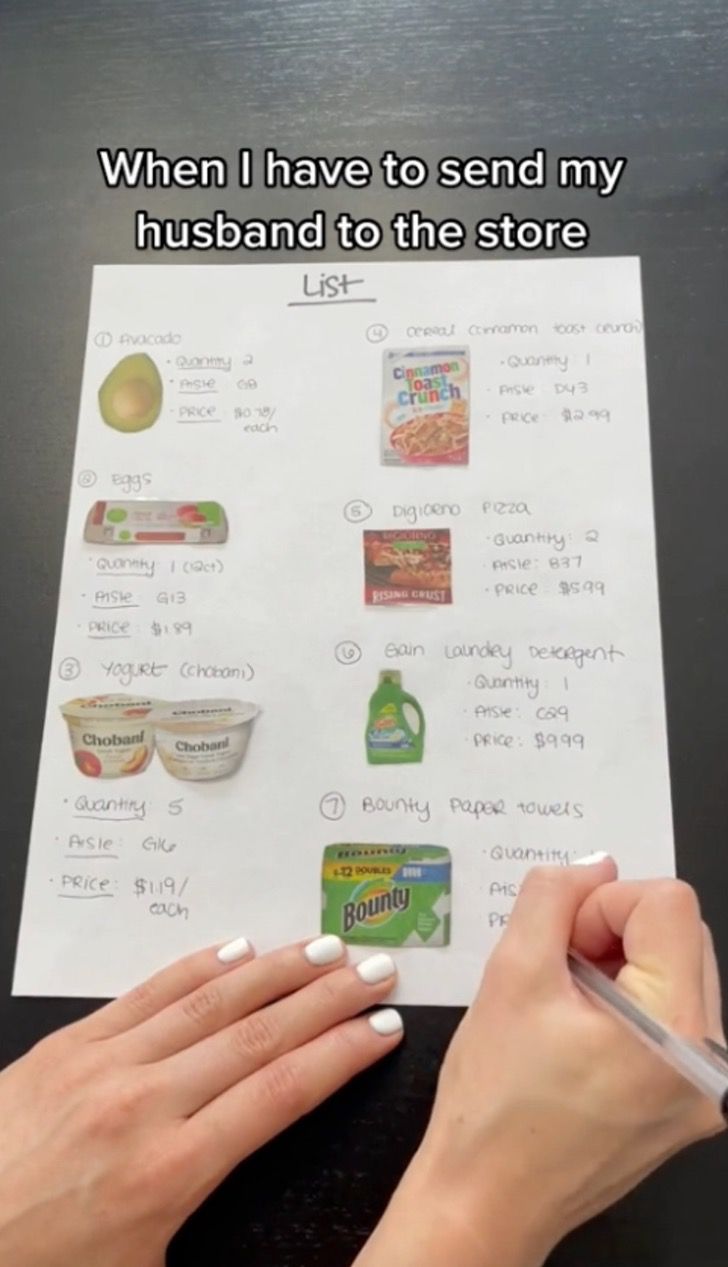 When I have to send my
husband to the store
List
① Avacado
• Quantity 2
• Aisle G8
• PRICE $0.78/
each
② Eggs
• Quantity 1 (12ct)
• Aisle G13
• PRICE: $1.89
③ Yogurt (chobani)
Chobani
Chobani
• Quantity: 5
• Aisle: G16
• PRICE: $1.19/
each
④ Cereal Cinnamon toast crunch
Cinnamon
Toast
Crunch
• Quantity 1
• Aisle D43
• PRICE $2.99
⑤ Digiorno Pizza
DIGIORNO
RISING CRUST
• Quantity: 2
• Aisle: B37
• PRICE $5.99
⑥ Gain Laundry Detergent
Gain
• Quantity: 1
• Aisle: C29
• PRICE: $9.99
⑦ Bounty Paper towels
Bounty
12 DOUBLES
Bounty
• Quantity:
Ais
PR